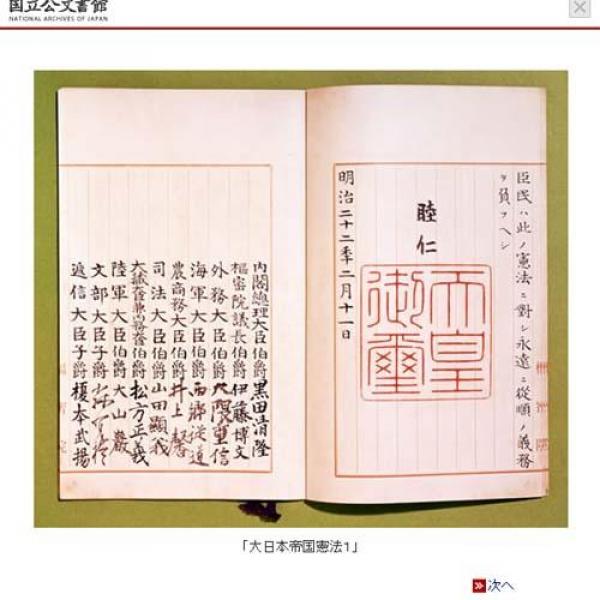 国立公文書館
NATIONAL ARCHIVES OF JAPAN
臣民ハ此ノ憲法ニ對シ永遠ニ從順ノ義務
ヲ負フヘシ
睦仁
天皇
御璽
明治二十二秊二月十一日
内閣總理大臣伯爵黒田清隆
樞密院議長伯爵伊藤博文
外務大臣伯爵大隈重信
海軍大臣伯爵西郷從道
農商務大臣伯爵井上馨
司法大臣伯爵山田顯義
大藏大臣兼内務大臣伯爵松方正義
陸軍大臣伯爵大山巖
文部大臣子爵森有禮
遞信大臣子爵榎本武揚
「大日本帝国憲法1」
次へ